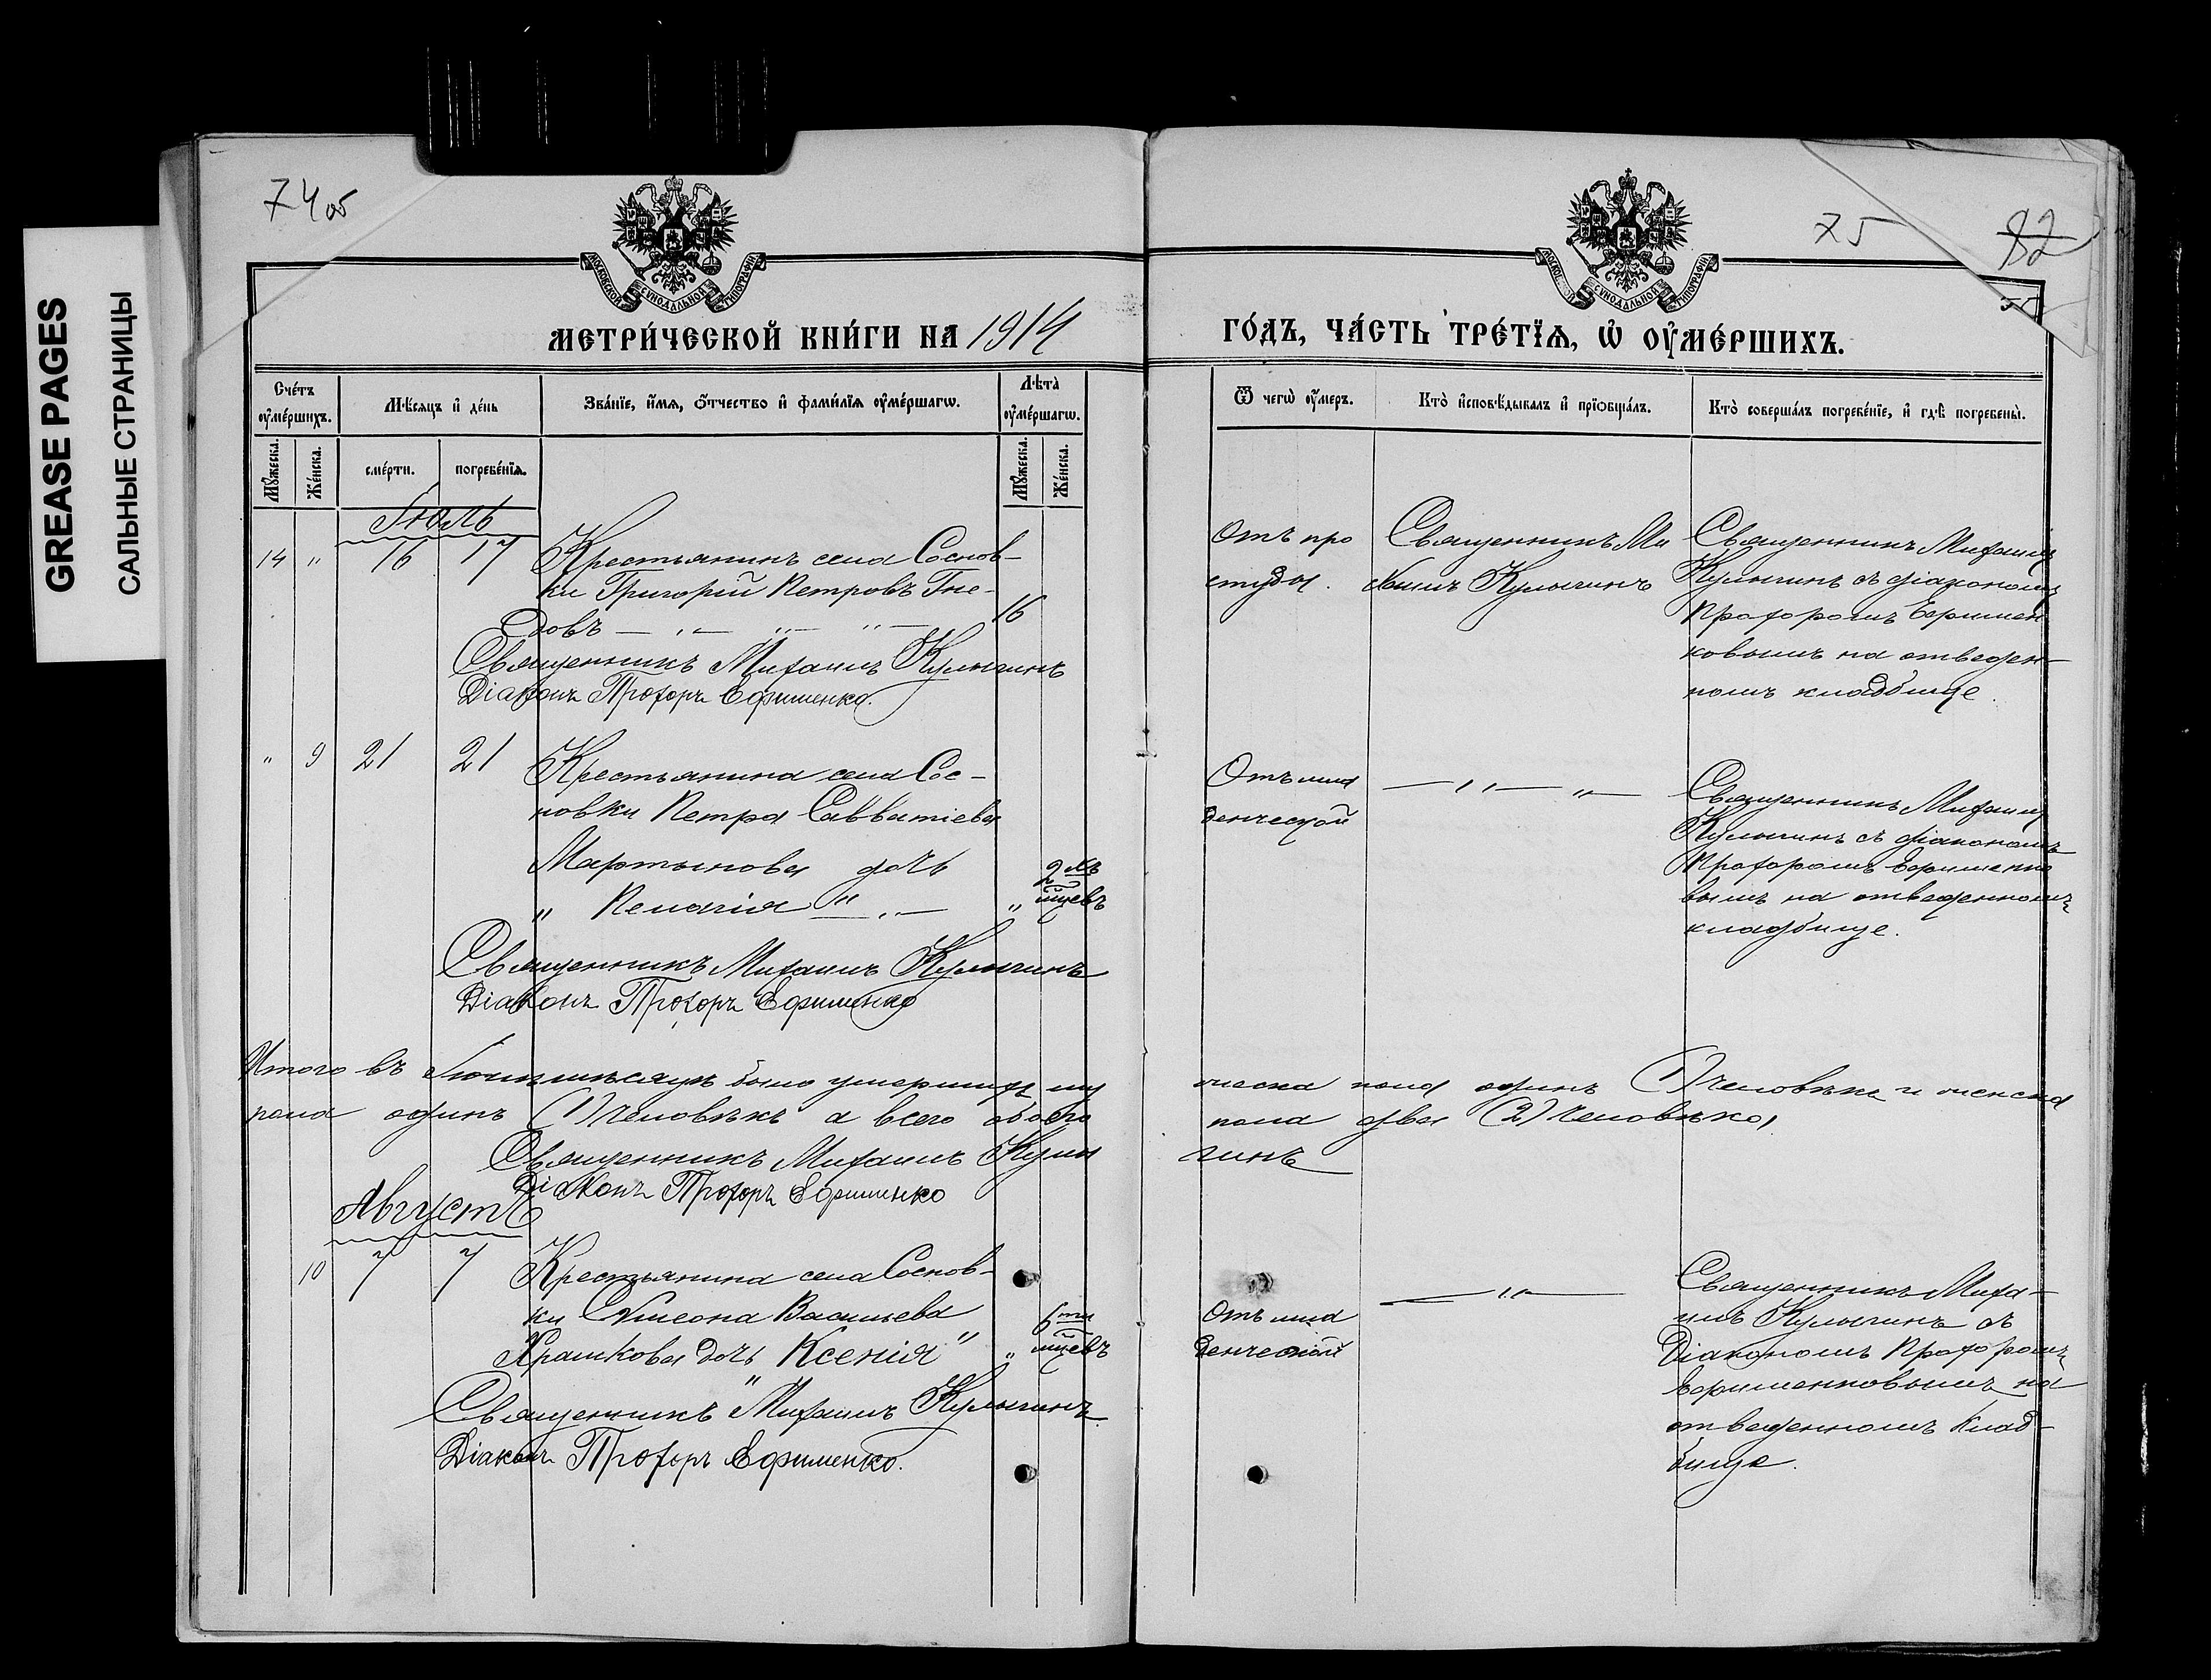 GREASE PAGES
САЛЬНЫЕ СТРАНИЦЫ
74 об
МОСКОВСКОЙ СѴНОДАЛЬНОЙ ТИПОГРАФІИ
МЕТРИ́ЧЕСКОЙ КНИ́ГИ НА 1914
Сче́тъ ᲂу҆ме́ршихъ.
Мѣ́сяцъ и҆ де́нь
Зва́нїе, и҆́мѧ, ѻ҆́тчество и҆ фамѝлїѧ ᲂу҆ме́ршагѡ.
Лѣ́та ᲂу҆ме́ршагѡ.
Мꙋ́жеска.
Же́нска.
сме́рти.
погребе́нїѧ.
Мꙋ́жеска.
Же́нска.
Іюль
14 " 16 17 Крестьянинъ села Соснов-
ки Григорій Петровъ Гне-
довъ 16
Священникъ Михаилъ Кулыгинъ
Діаконъ Прохоръ Ефименко.
" 9 21 21 Крестьянина села Сос-
новки Петра Савватіева
Мартынова дочь 2хъ
" Пелагія " " мцевъ
Священникъ Михаилъ Кулыгинъ
Діаконъ Прохоръ Ефименко
Итого въ Іюлѣ мѣсяцѣ было умершихъ му
пола одинъ (1) человѣкъ а всего обоего
Священникъ Михаилъ Кулы
Діаконъ Прохоръ Ефименко
Августъ
10 7 7 Крестьянина села Соснов-
ки Симеона Васильева 6ти
дочь Ксенія " " мцевъ
Священникъ Михаилъ Кулыгинъ
Діаконъ Прохоръ Ефименко.
75
82
МОСКОВСКОЙ СѴНОДАЛЬНОЙ ТИПОГРАФІИ
ГО́ДЪ, ЧА́СТЬ ТРЕ́ТЇѦ, Ѡ҆ ОУ҆МЕ́РШИХЪ.
Ѿ чегѡ̀ ᲂу҆́меръ.
Кто̀ и҆сповѣ́дывалъ и҆ прїѡбща́лъ.
Кто̀ соверша́лъ погребе́нїе, и҆ гдѣ̀ погребены̀.
Отъ про
студы.
Священникъ Ми
хаилъ Кулыгинъ
Священникъ Михаилъ
Кулыгинъ съ діакономъ
Прохоромъ Ефимен
ковымъ на отведен-
номъ кладбище.
Отъ мла
денческой
Священникъ Михаилъ
Кулыгинъ съ діакономъ
Прохоромъ Ефименко
вымъ на отведенномъ
кладбище.
жеска пола одинъ (1) человѣкъ и женска
пола два (2) человѣка,
гинъ
Отъ мла
денческой
Священникъ Миха-
илъ Кулыгинъ съ
Діакономъ Прохоромъ
Ефименковымъ на
отведенномъ клад-
бище.